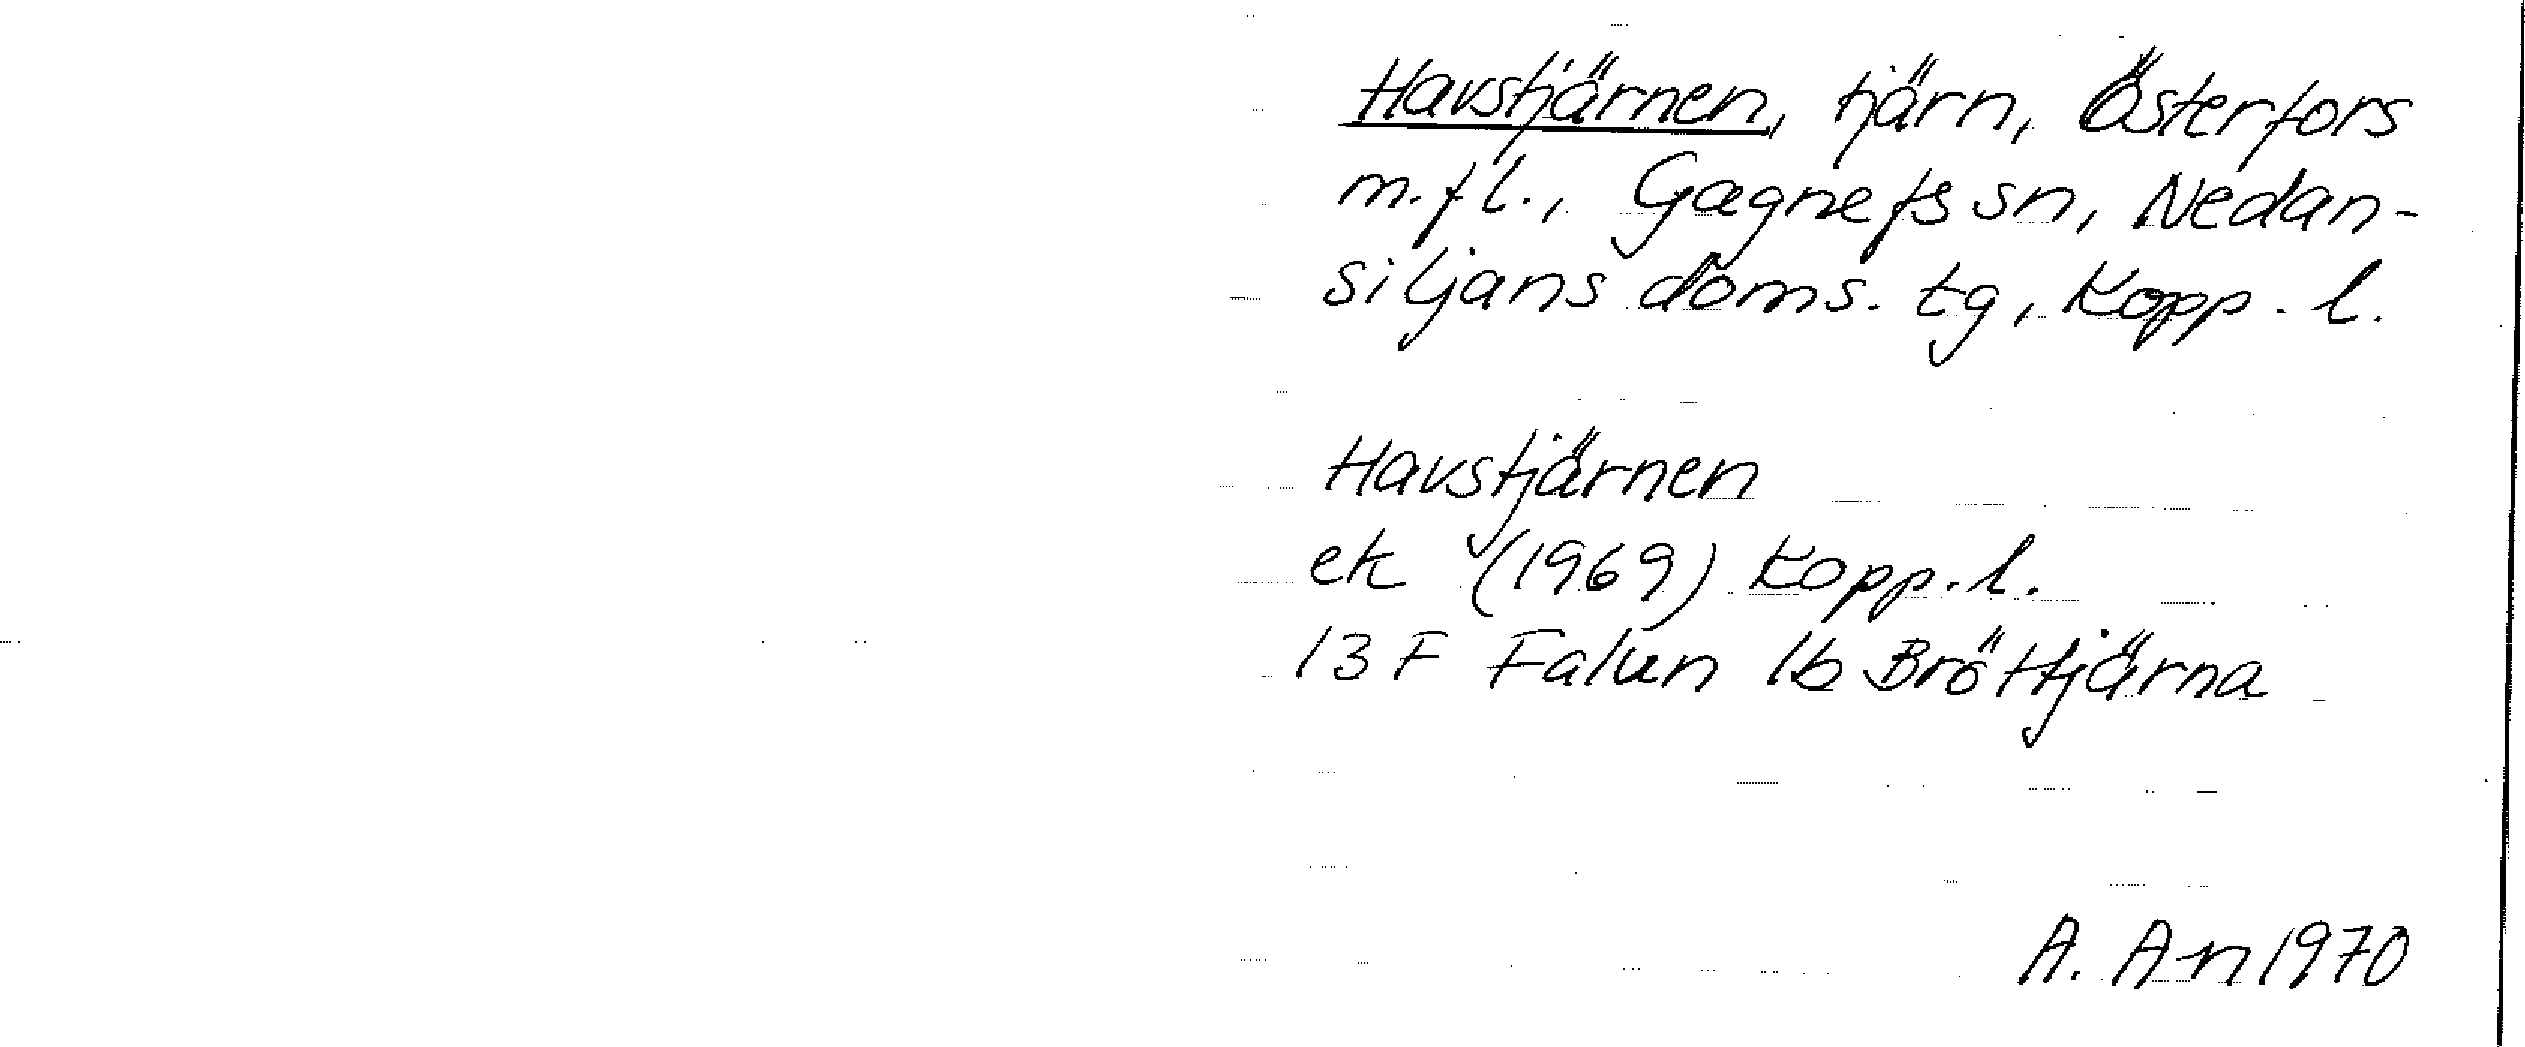 Havstjärnen, tjärn, Österfors
m.fl., Gagnefs sn, Nedan-
siljans doms. tg, Kopp. l.
Havstjärnen
ek (1969) Kopp. l.
13 F Falun 1b Bröttjärna
A. An 1970